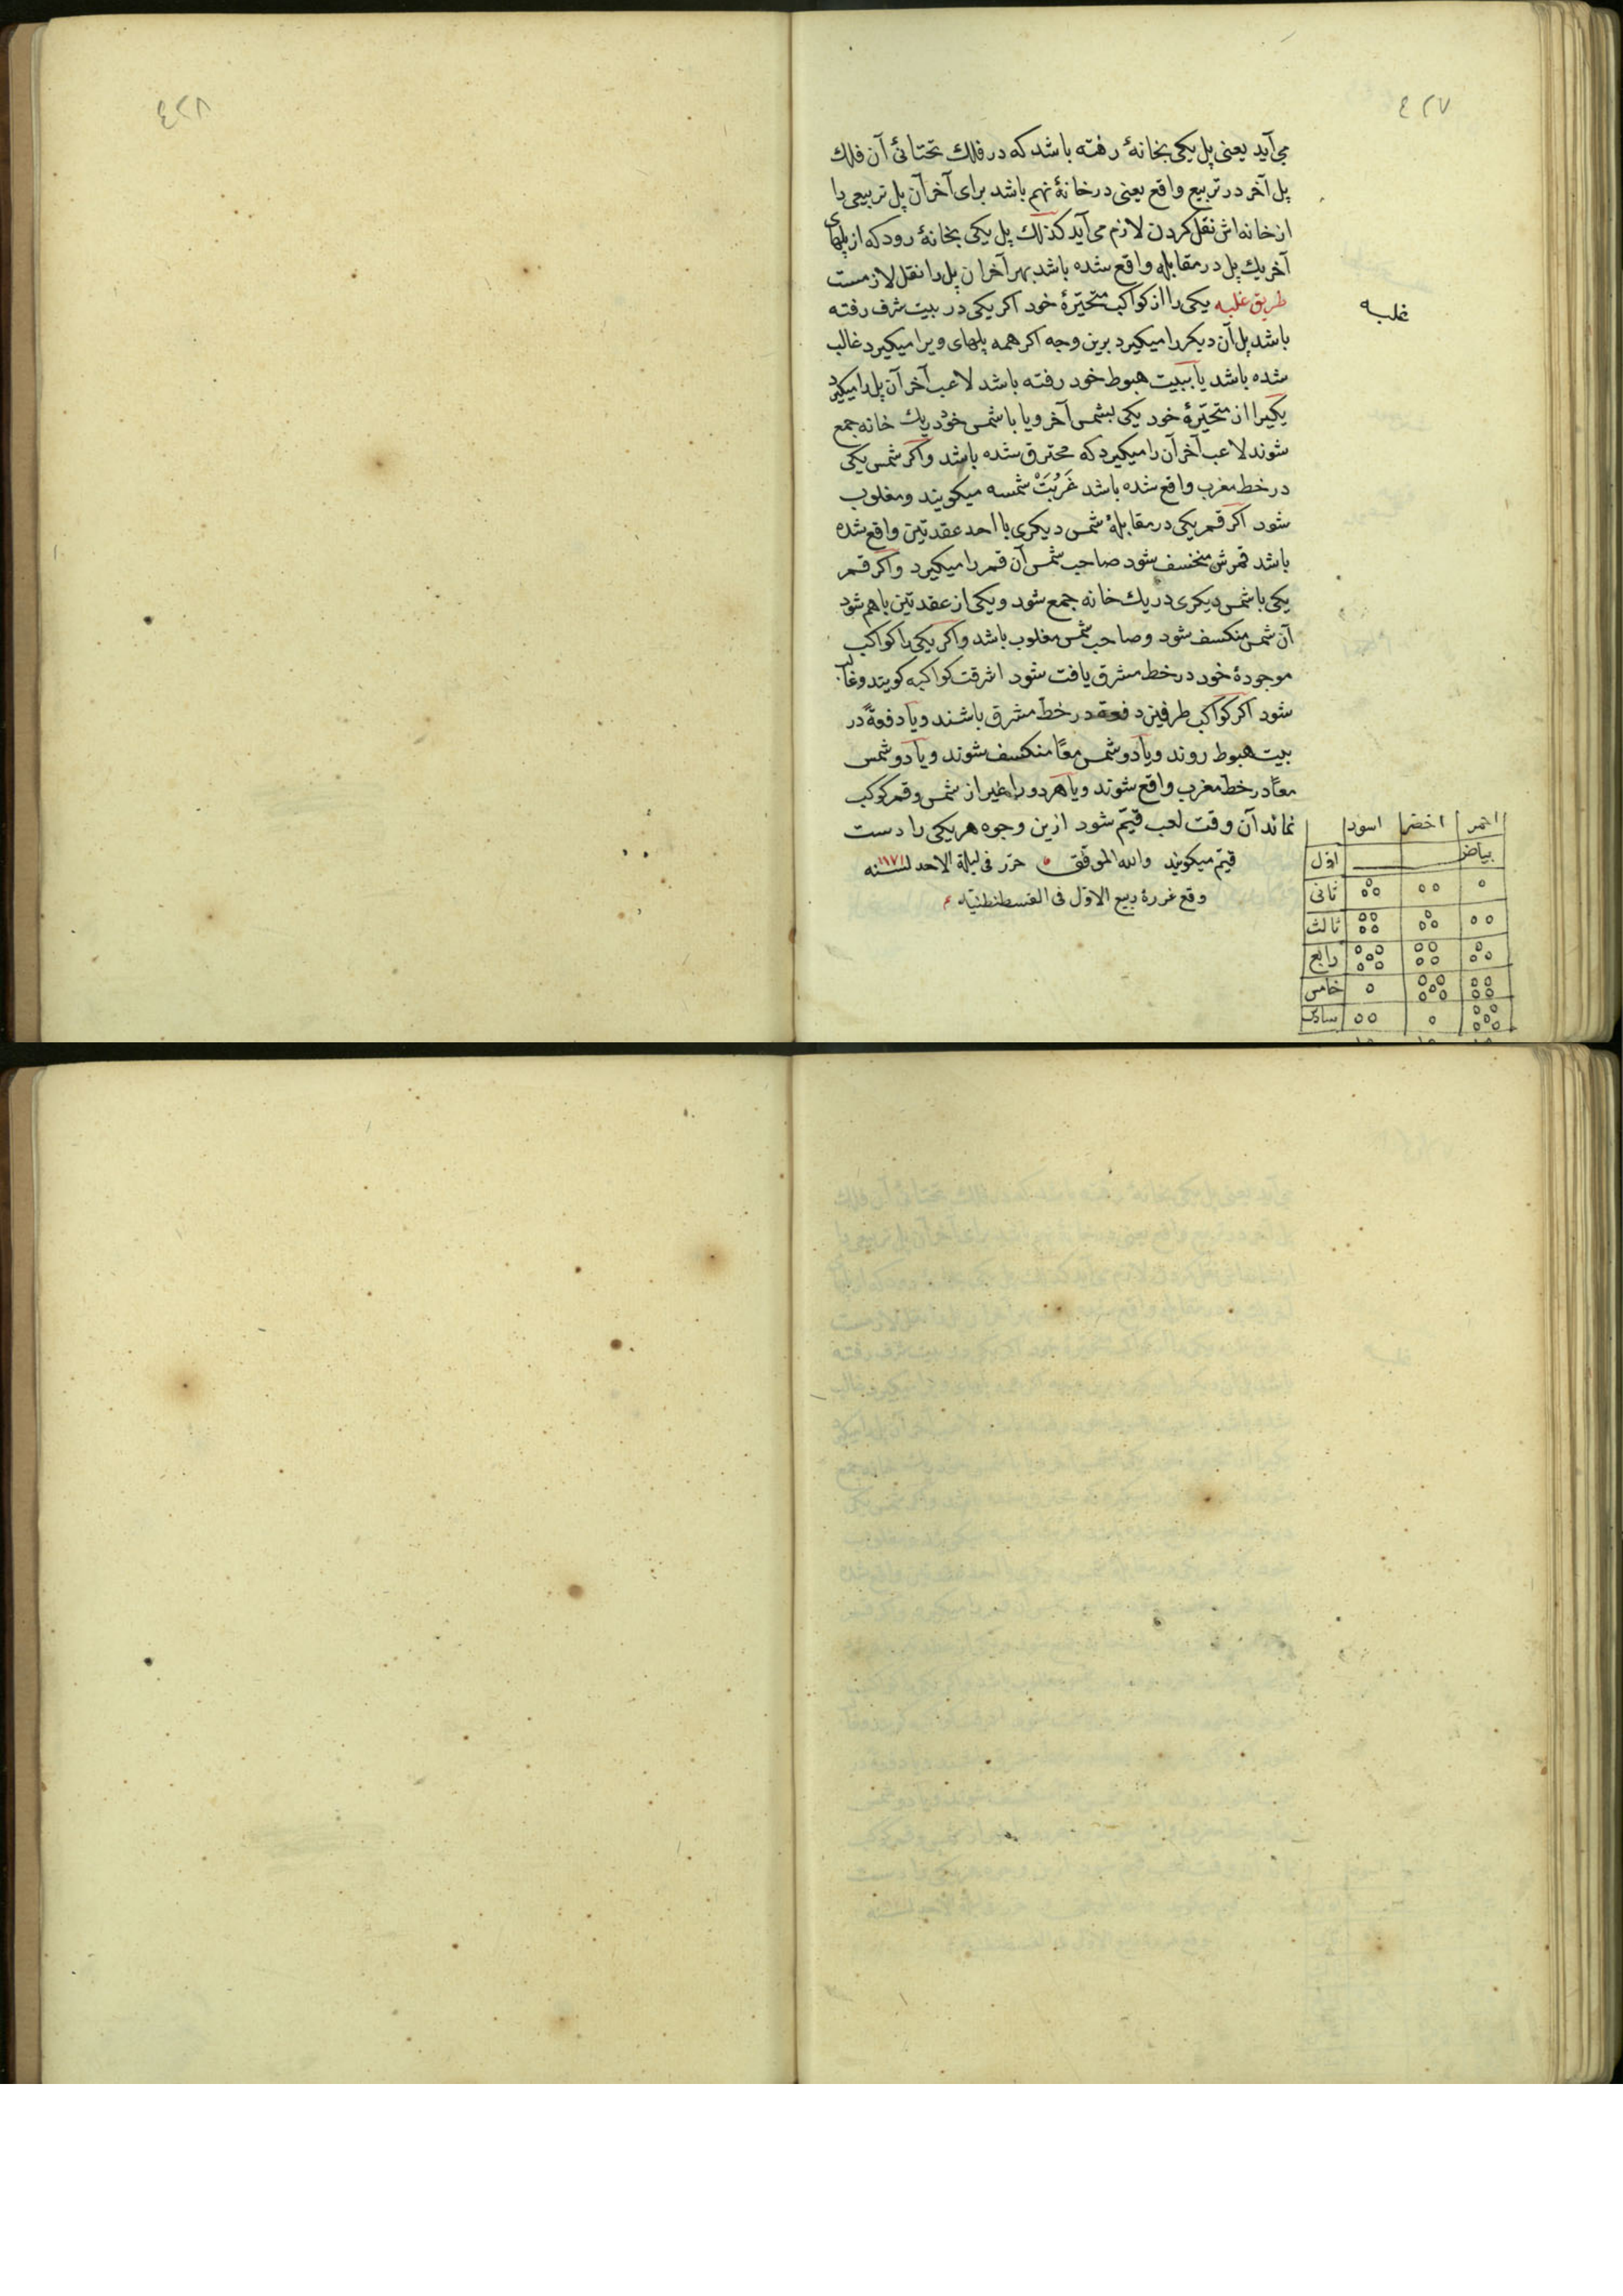 ٤٢٧
می‌آید یعنی پل یکی بخانهٔ رفته باشد که در فلك تحتانئ آن فلك
پل آخر در تربیع واقع یعنی در خانهٔ نهم باشد برای آخر آن پل تربیعی را
از خانه‌اش نقل کردن لازم می‌آید کذلك پل یکی بخانهٔ رود که از پلهای
آخر یك پل در مقابله واقع شده باشد بهر آخر ان پل را نقل لازمست
طریق غلبه یکی را از کواکب متحیّرهٔ خود اکر یکی در بیت شرف رفته
غلبه
باشد پل آن دیکر را میکیرد برین وجه اکر همه پلهای ویرا میکیرد غالب
شده باشد یا ببیت هبوط خود رفته باشد لاعب آخر آن پل را میکیرد
یکیرا از متحیّرهٔ خود یکی بشمس آخر ویا با شمس خود یك خانه جمع
شوند لاعب آخر آن را میکیرد که محترق شده باشد واکر شمس یکی
در خط مغرب واقع شده باشد غَرُبَتْ شمسه میکویند ومغلوب
شود اکر قمر یکی در مقابلهٔ شمس دیکری با احد عقدتین واقع شده
باشد قمرش منخسف شود صاحب شمس آن قمر را میکیرد واکر قمر
یکی با شمس دیکری در یك خانه جمع شود ویکی از عقدتین باهم شود
آن شمس منکسف شود وصاحب شمس مغلوب باشد واکر یکی را کواکب
موجودهٔ خود در خط مشرق یافت شود اشرقت کواکبه کویند وغالب
شود اکر کواکب طرفین دفعة در خط مشرق باشند ویا دفعةً در
بیت هبوط روند ویا دو شمس معًا منکسف شوند ویا دو شمس
معًا در خط مغرب واقع شوند ویا هر دو را غیر از شمس وقمر کوکب
نماند آن وقت لعب قیّم شود ازین وجوه هر یکی را دست
قیّم میکویند والله الموفّق حرّر فی لیلة الاحد لسنه ١١٧١
وقع غررهٔ ربیع الاوّل فی القسطنطنیّه
احمر اخضر اسود
بیاض اوّل
ثانی
ثالث
رابع
خامس
سادس
٤٢٨